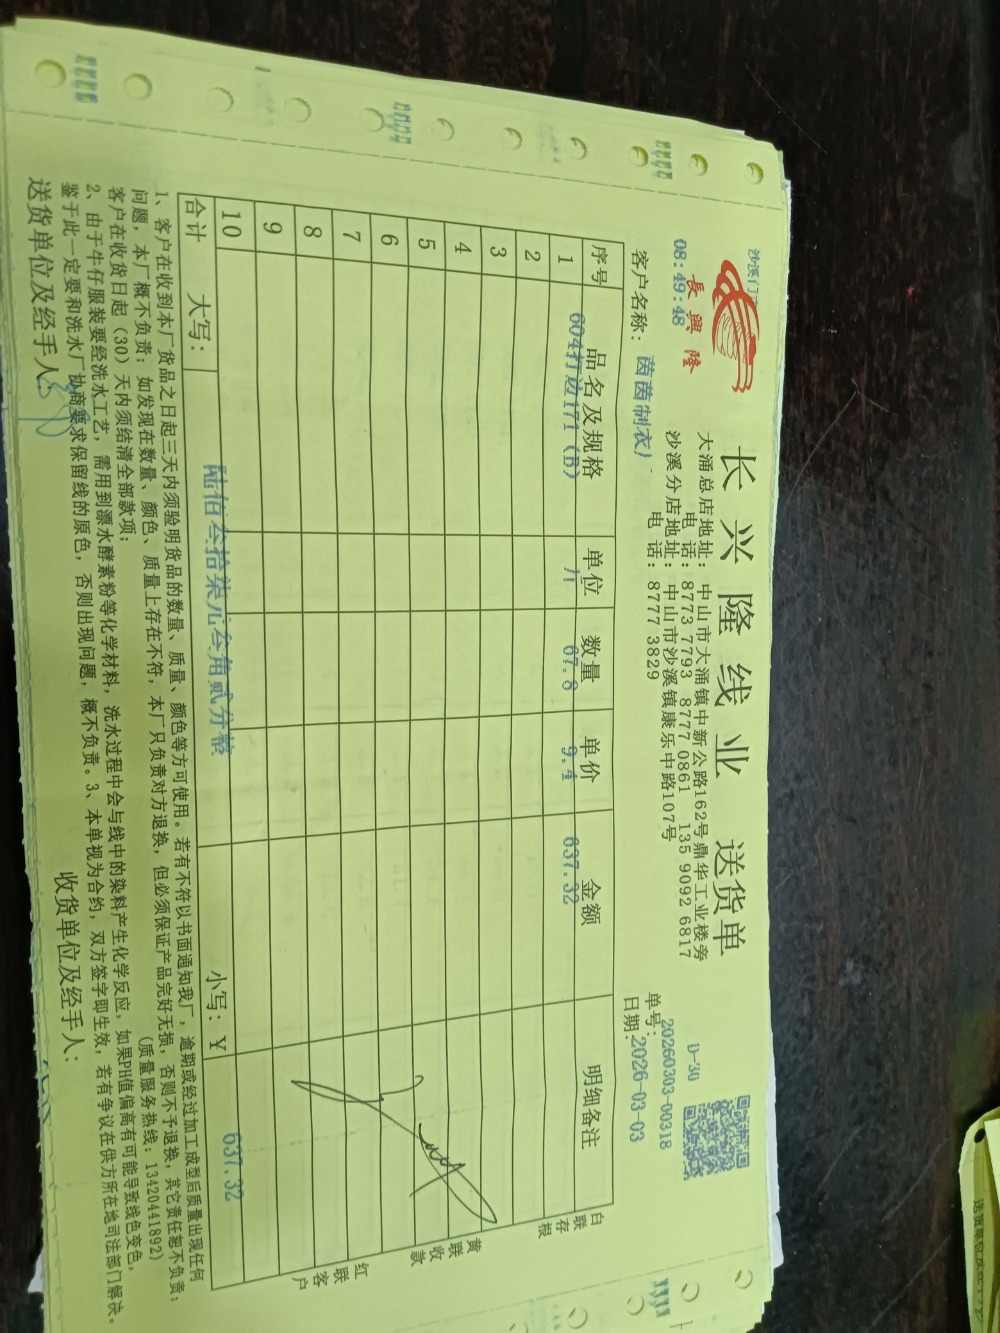 長興隆
08:49:48
长兴隆线业 送货单
大涌总店地址：中山市大涌镇中新公路162号鼎华工业楼旁
电 话：8773 7793 8777 0861 135 9092 6817
沙溪分店地址：中山市沙溪镇康乐中路107号
电 话：8777 3829
D-30
单号：20260303-00318
日期：2026-03-03
客户名称：茵茵制衣厂
序号 品名及规格 单位 数量 单价 金额 明细备注
1 604打边171(B) 个 67.8 9.4 637.32
2
3
4
5
6
7
8
9
10
合计 大写：陆佰叁拾柒元叁角贰分整 小写：Y 637.32
白联存根
黄联收款
红联客户
1、客户在收到本厂货品之日起三天内须验明货品的数量、质量、颜色等方可使用。若有不符以书面通知我厂，逾期或经过加工成型后质量出现任何
问题，本厂概不负责；如发现在数量、颜色、质量上存在不符，本厂只负责对方退换，但必须保证产品完好无损，否则不予退换，其它责任恕不负责；
客户在收货日起（30）天内须结清全部款项； （质量服务热线：13420441892）
2、由于牛仔服装要经洗水工艺，需用到漂水酵素粉等化学材料，洗水过程中会与线中的染料产生化学反应，如果PH值偏高有可能导致线色变色，
鉴于此一定要和洗水厂协商要求保留线的原色，否则出现问题，概不负责。3、本单视为合约，双方签字即生效，若有争议在供方所在地司法部门解决。
送货单位及经手人： 收货单位及经手人：